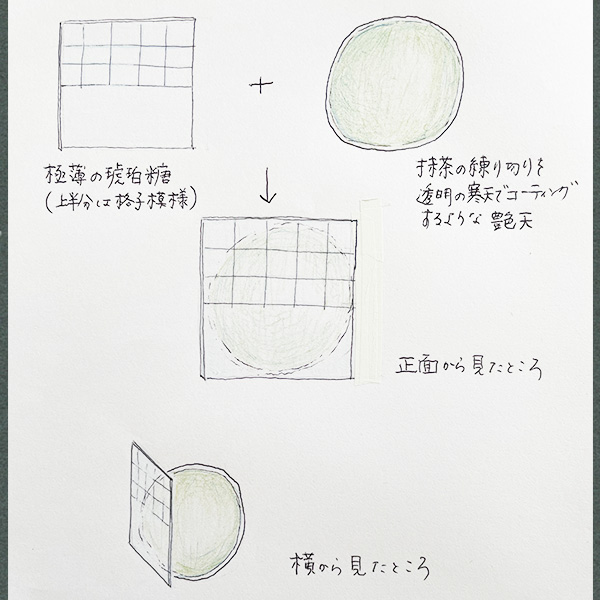 +
極薄の琥珀糖
(上半分は格子模様)
抹茶の練り切りを
透明の寒天でコーティング
するような艶天
正面から見たところ
横から見たところ